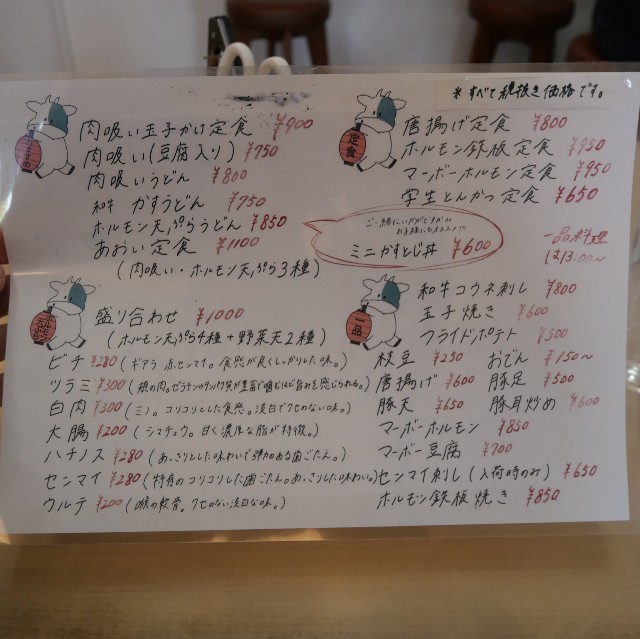 肉吸い玉子かけ定食 ¥900
肉吸い(豆腐入り) ¥750
肉吸いうどん ¥800
和牛 かすうどん ¥750
ホルモン天ぷらうどん ¥850
あおい定食 ¥1100
(肉吸い・ホルモン天ぷら3種)
盛り合わせ ¥1000
(ホルモン天ぷら4種+野菜天2種)
ビチ ¥280 (ギアラ 赤センマイ。食感が良くしっかりした味。)
ツラミ ¥300 (頬の肉。ゼラチンのタンパク質が豊富で噛むほど旨みを感じられる。)
白肉 ¥300 (ミノ。コリコリとした食感。淡白でクセのない味。)
大腸 ¥200 (シマチョウ。甘く濃厚な脂が特徴。)
ハチノス ¥280 (あっさりとした味わいで弾力のある歯ごたえ。)
センマイ ¥280 (特有のコリコリした歯ごたえ。あっさりした味わい。)
ウルテ ¥200 (喉の軟骨。クセのない淡白な味。)
※すべて税抜き価格です。
定食
唐揚げ定食 ¥800
ホルモン鉄板定食 ¥950
マーボーホルモン定食 ¥950
学生とんかつ定食 ¥650
ご一緒にいかがですか
ミニかすとじ丼 ¥600
一品料理
は13:00〜
一品
和牛コウネ刺し ¥800
玉子焼き ¥600
フライドポテト ¥300
枝豆 ¥250 おでん ¥150〜
唐揚げ ¥600 豚足 ¥500
豚天 ¥650 豚耳炒め ¥600
マーボーホルモン ¥850
マーボー豆腐 ¥700
センマイ刺し(入荷時のみ) ¥650
ホルモン鉄板焼き ¥850